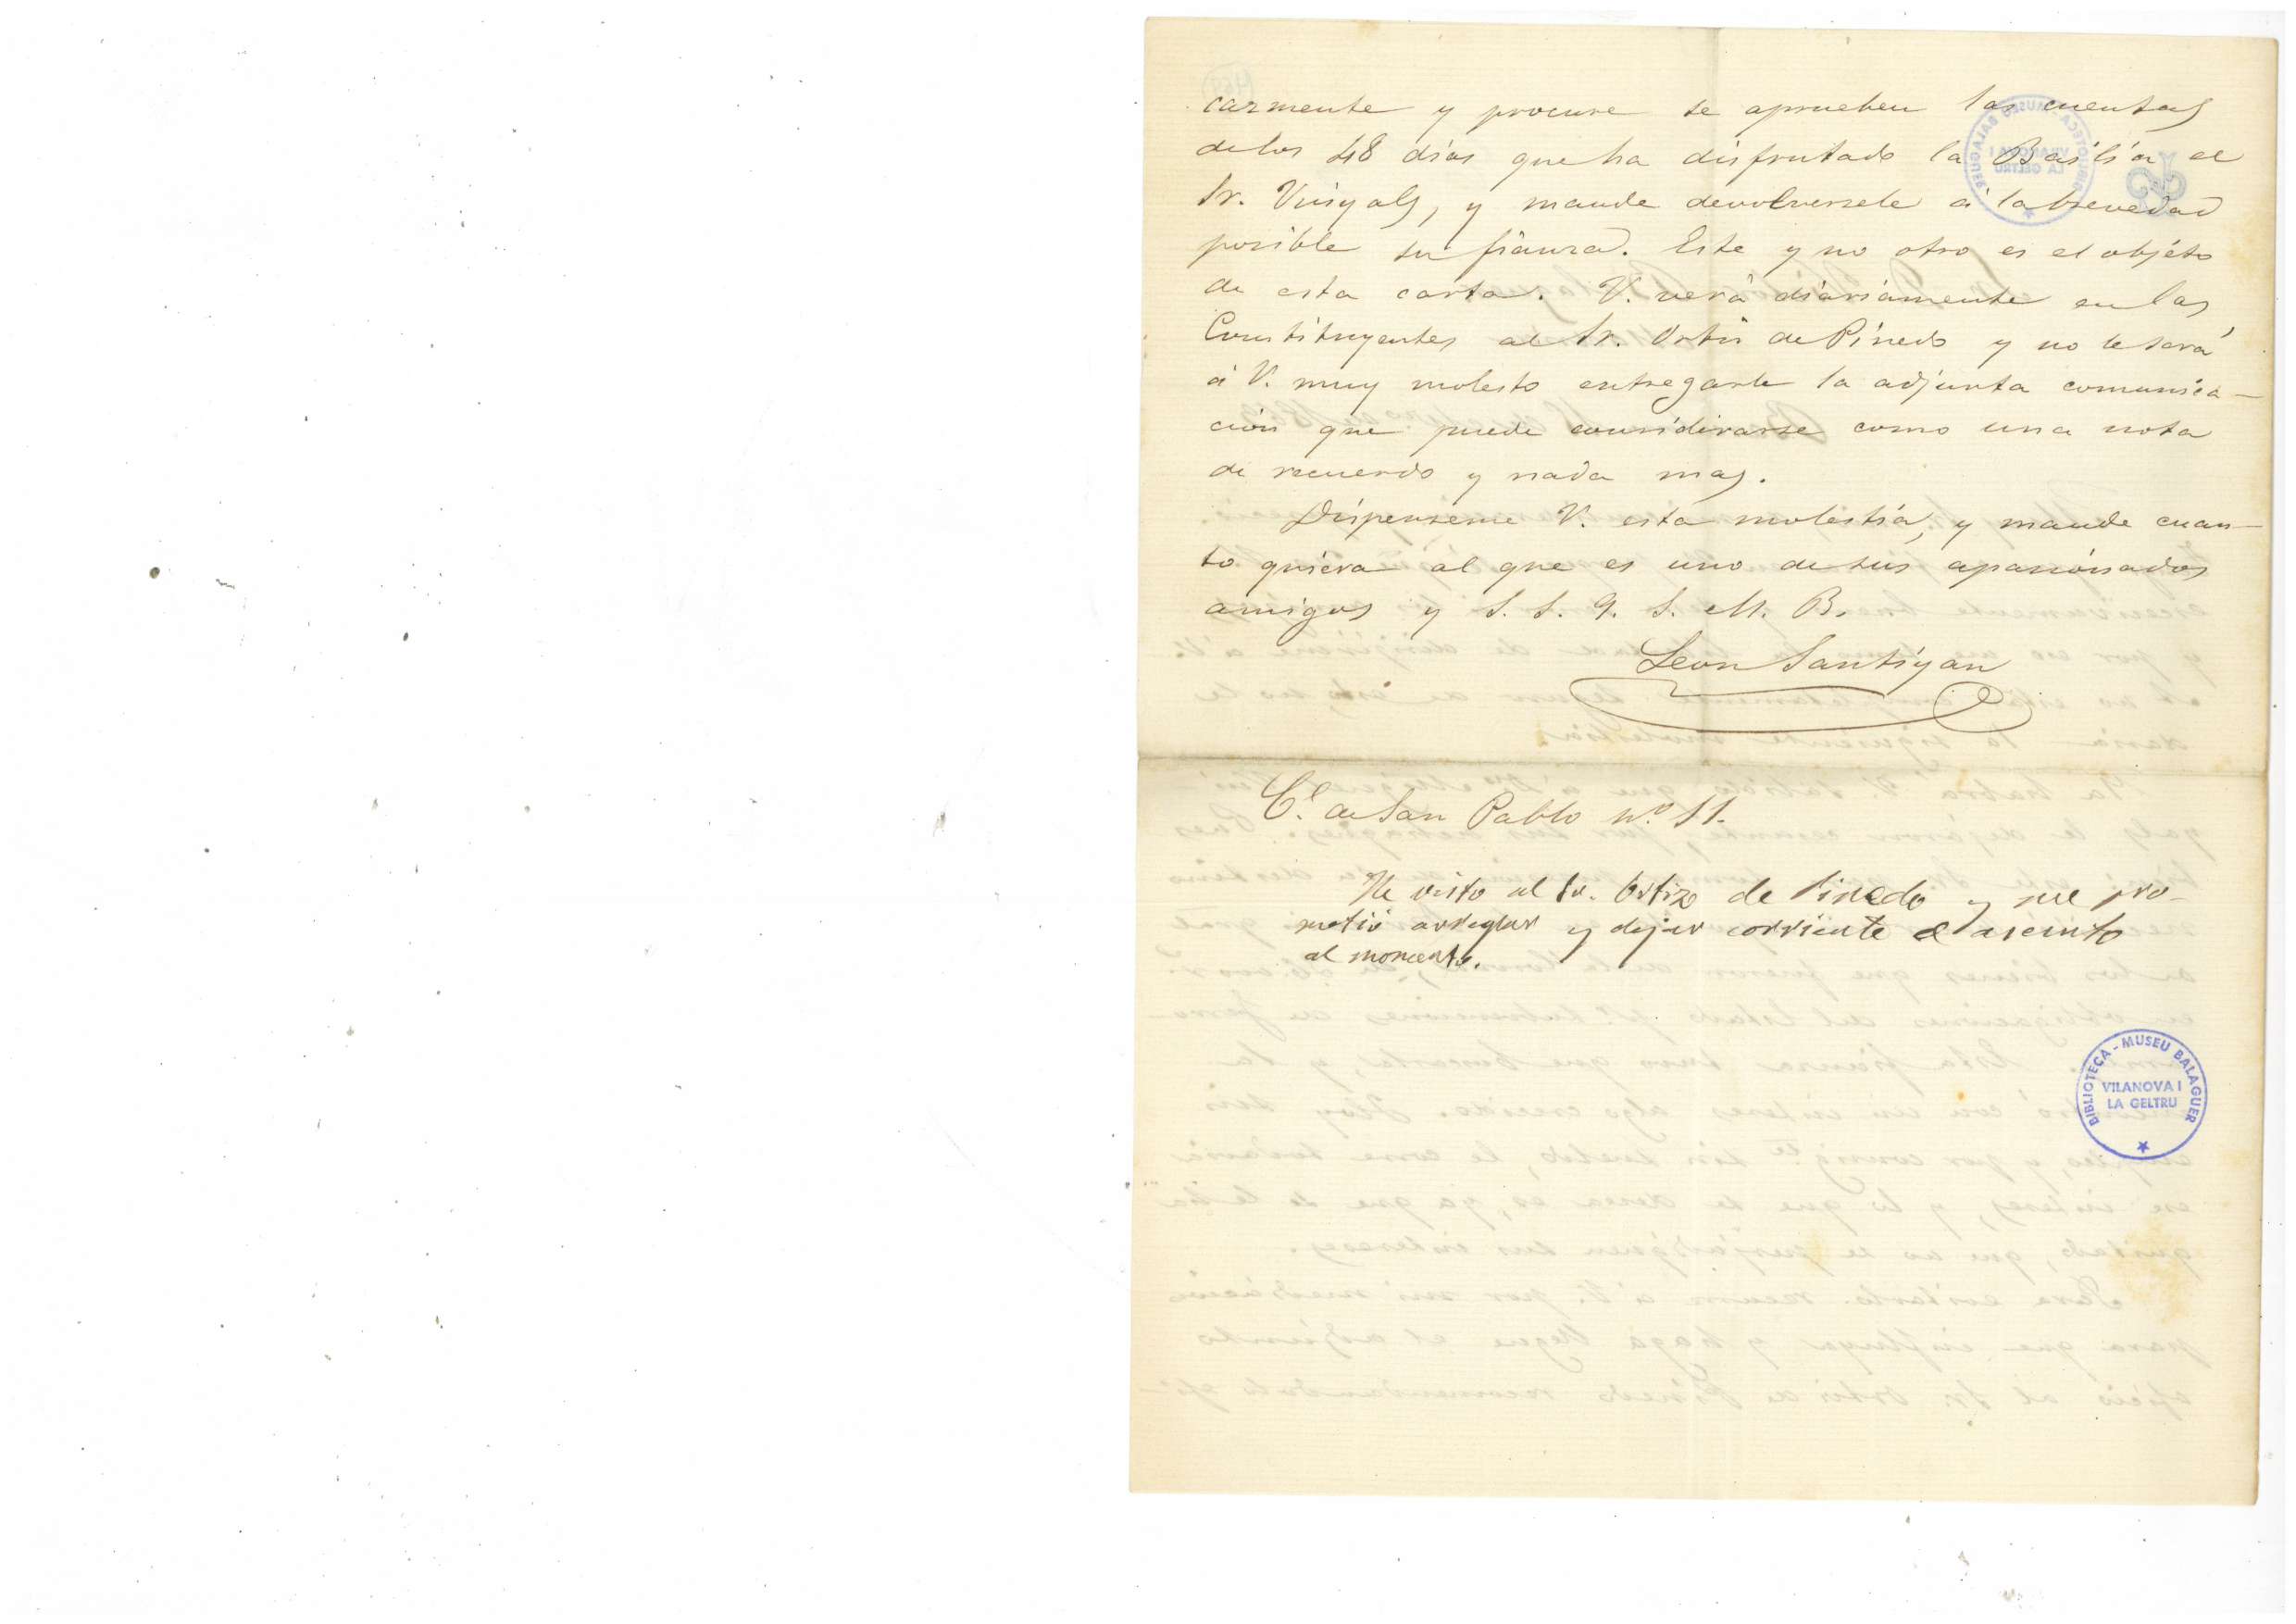 carmente y procure se aprueben las cuentas
de los 48 dias que ha disfrutado la Bailía el
Sr. Vinyals, y mande devolversele á la brevedad
posible su fianza. Este y no otro es el objéto
de esta carta. V. verá diariamente en las
Constituyentes al Sr. Ortiz de Pinedo y no le será
á V. muy molesto entregarle la adjunta comunica-
cion que puede considerarse como una nota
de recuerdo y nada mas.
Dispenseme V. esta molestia, y mande cuan-
to quiera al que es uno de sus apasionados
amigos y S. S. q. S. M. B.
Leon Santigan
C.l de San Pablo n.o 11.
He visto al Sr. Ortiz de Pinedo y me pro-
metió arreglar y dejar corriente el asunto
al momento.
BIBLIOTECA - MUSEU BALAGUER
VILANOVA I
LA GELTRU